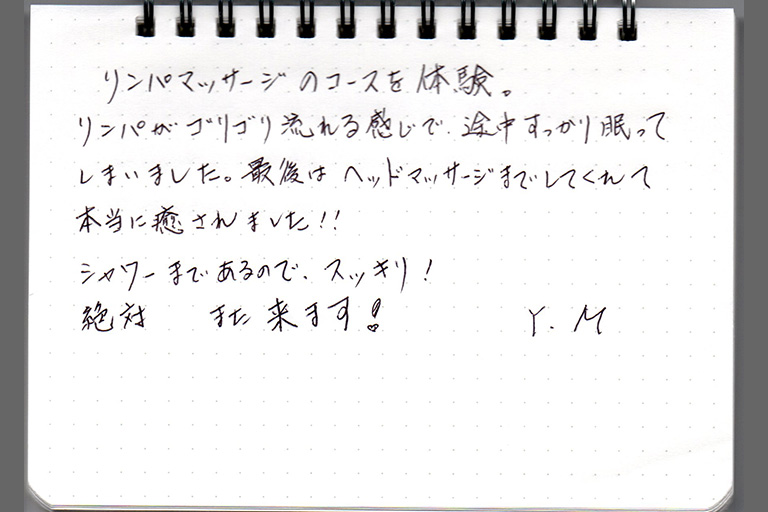 リンパマッサージのコースを体験。
リンパがゴリゴリ流れる感じで、途中すっかり眠って
しまいました。最後はヘッドマッサージまでしてくれて
本当に癒されました!!
シャワーまであるので、スッキリ!
絶対 また来ます! Y. M